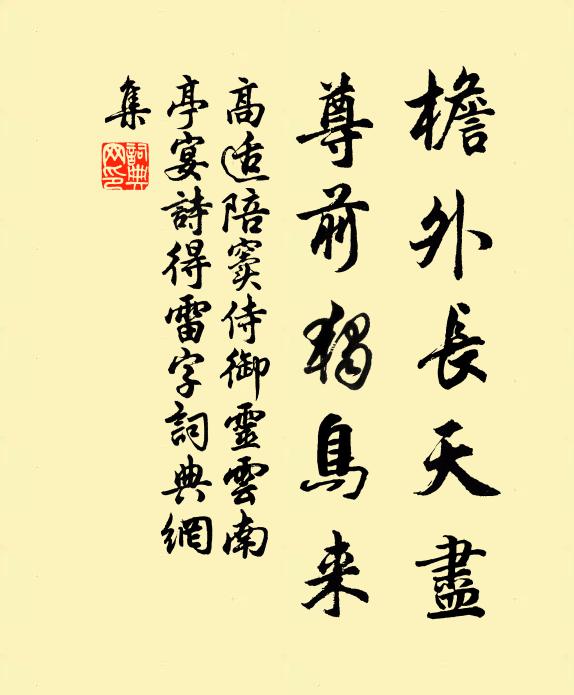 檐外長天盡
尊前獨鳥来
高适陪竇侍御靈雲南
亭宴詩得雷字詞典網
集
詞典网印